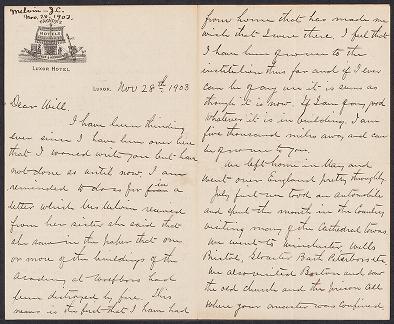 Melvin - J.C.
Nov. 28, 1903.
HOTELS
LUXOR HOTEL
LUXOR. Nov 28th 1903
Dear Will.
I have been thinking
ever since I have been over here
that I would write you but have
not done so until now. I am
reminded to do so for in a
letter which Mrs Melvin received
from her sister she said that
she saw in the paper that one
or more of the buildings of the
Academy at had
been destroyed by fire. This
news is the first that I have had
from home that has made me
wish that I were there. I feel that
I have been of use to the
institution thus far and if I ever
can be of any use it seems as
though it is now. If I am any good
whatever it is in building, I am
five thousand miles away and can
be of no use to you.
We left home in May and
went over England pretty thoroughly.
July first we took an automobile
and spent the month in the country
visiting many of the Cathedral towns
We went to Winchester, Wells
Bristol, Bath Peterboro etc
We also visited Boston and saw
the old church and the prison cell
where your ancestor was confined